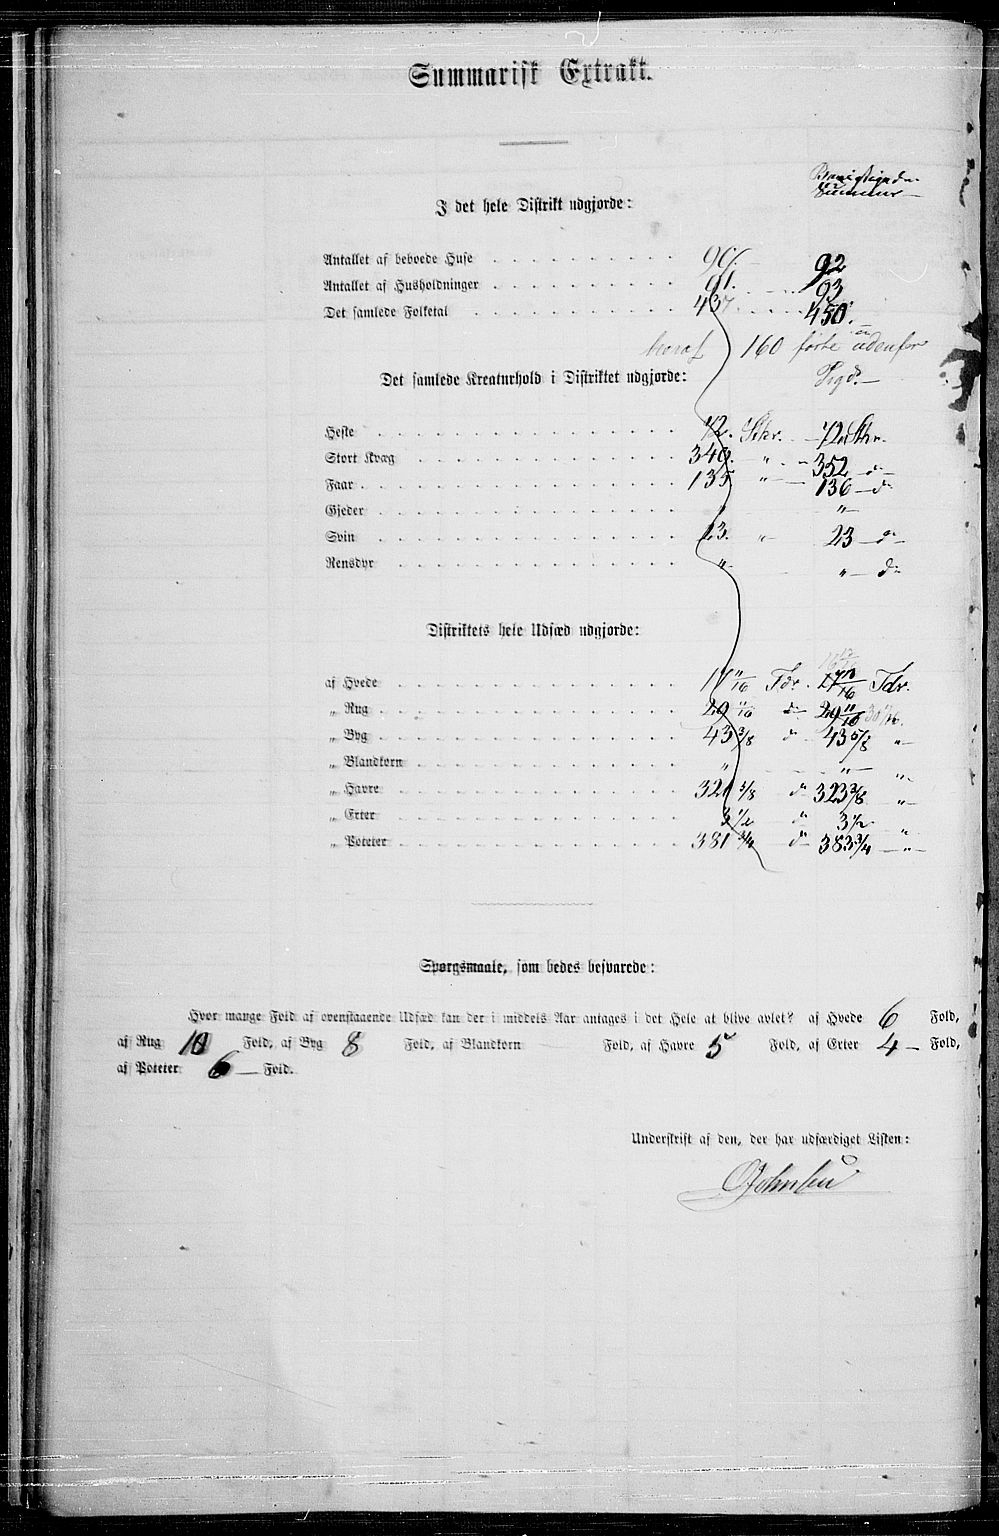 Summarisk Extrakt.
Summer
I det hele Distrikt udgjorde:
Antallet af beboede Huse 90. 92
Antallet af Husholdninger 91. 93
Det samlede Folketal 437 450.
hvoraf 160 førte udenfor
Det samlede Kreaturhold i Distriktet udgjorde:
Heste 72. Stkr. 72 Stkr.
Stort Kvæg 349. " 352 do
Faar 135 " 136 do
Gjeder " "
Svin 23. " 23 do
Rensdyr " " do
Distriktets hele Udsæd udgjorde:
af Hvede 17 11/16 Tdr. Tdr.
„ Rug 29 11/16 do 29 11/16
„ Byg 43 3/8 do 43 5/8 "
„ Blandkorn " " "
„ Havre do 323 3/8 "
„ Erter 3 1/2 do 3 1/2 "
„ Poteter 381 3/4 do 383 3/4 "
Spørgsmaale, som bedes besvarede:
Hvor mange Fold af ovenstaaende Udsæd kan der i middels Aar antages i det Hele at blive avlet? af Hvede 6 Fold,
af Rug 10 Fold, af Byg 8 Fold, af Blandkorn — Fold, af Havre 5 Fold, af Erter 4 Fold,
af Poteter 6 Fold.
Underskrift af den, der har udfærdiget Listen: